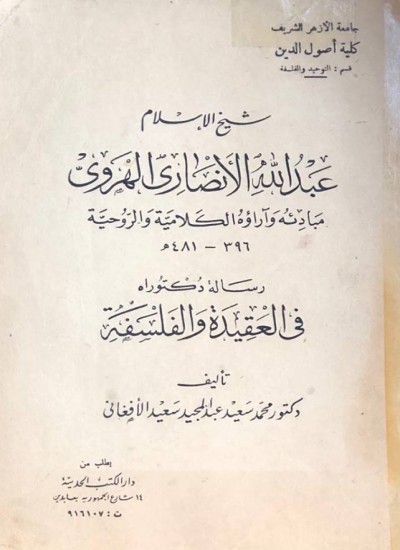 جامعة الأزهر الشريف
كلية أصول الدين
قسم : التوحيد والفلسفة
شيخ الإسلام
عبد الله الأنصارى الهروى
مبادئه وآراؤه الكلامية والروحية
٣٩٦ - ٤٨١ هـ
رسالة دكتوراه
فى العقيدة والفلسفة
تأليف
دكتور محمد سعيد عبد المجيد سعيد الأفغانى
يطلب من
دار الكتب الحديثة
١٤ شارع الجمهورية بعابدين
ت : ٩١٦١٠٧